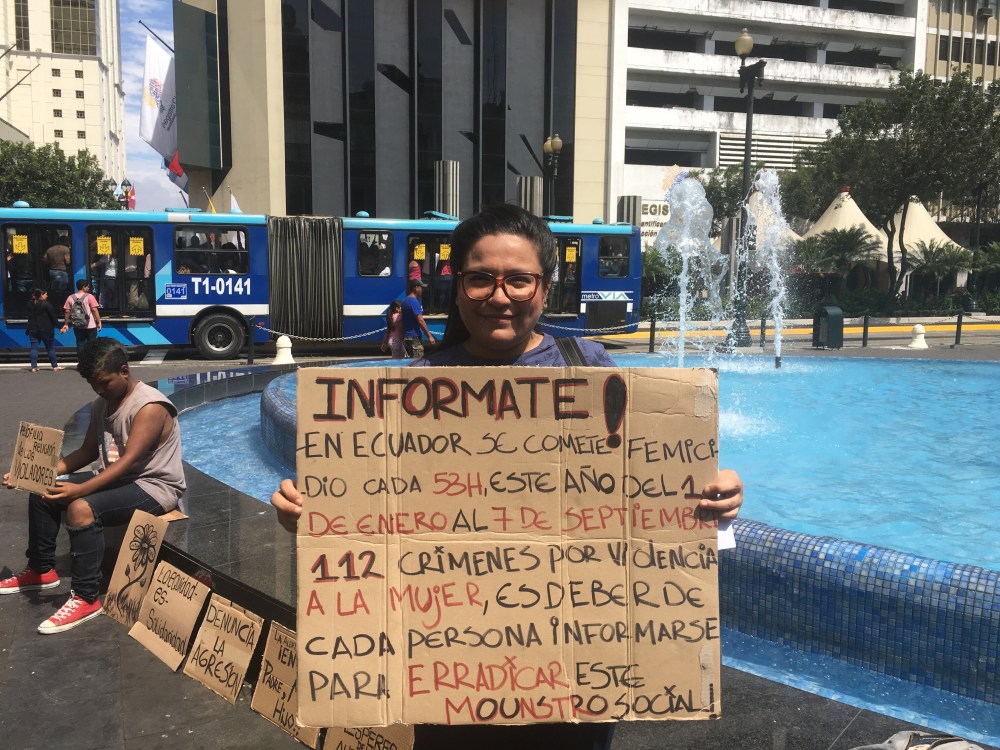 T1-0141
0141
metro VIA
REGIS
INFORMATE!
EN ECUADOR SE COMETE FEMICI
DIO CADA 53H, ESTE AÑO DEL 1
DE ENERO AL 7 DE SEPTIEMBRE
112 CRÍMENES POR VIOLENCIA
A LA MUJER, ES DEBER DE
CADA PERSONA INFORMARSE
PARA ERRADICAR ESTE
MOUNSTRO SOCIAL!
RELIGIÓN
DE LOS
VIOLADORES
Legalidad
es-
Solidaridad
DENUNCIA
LA
AGRESIÓN
PADRE,
HIJO